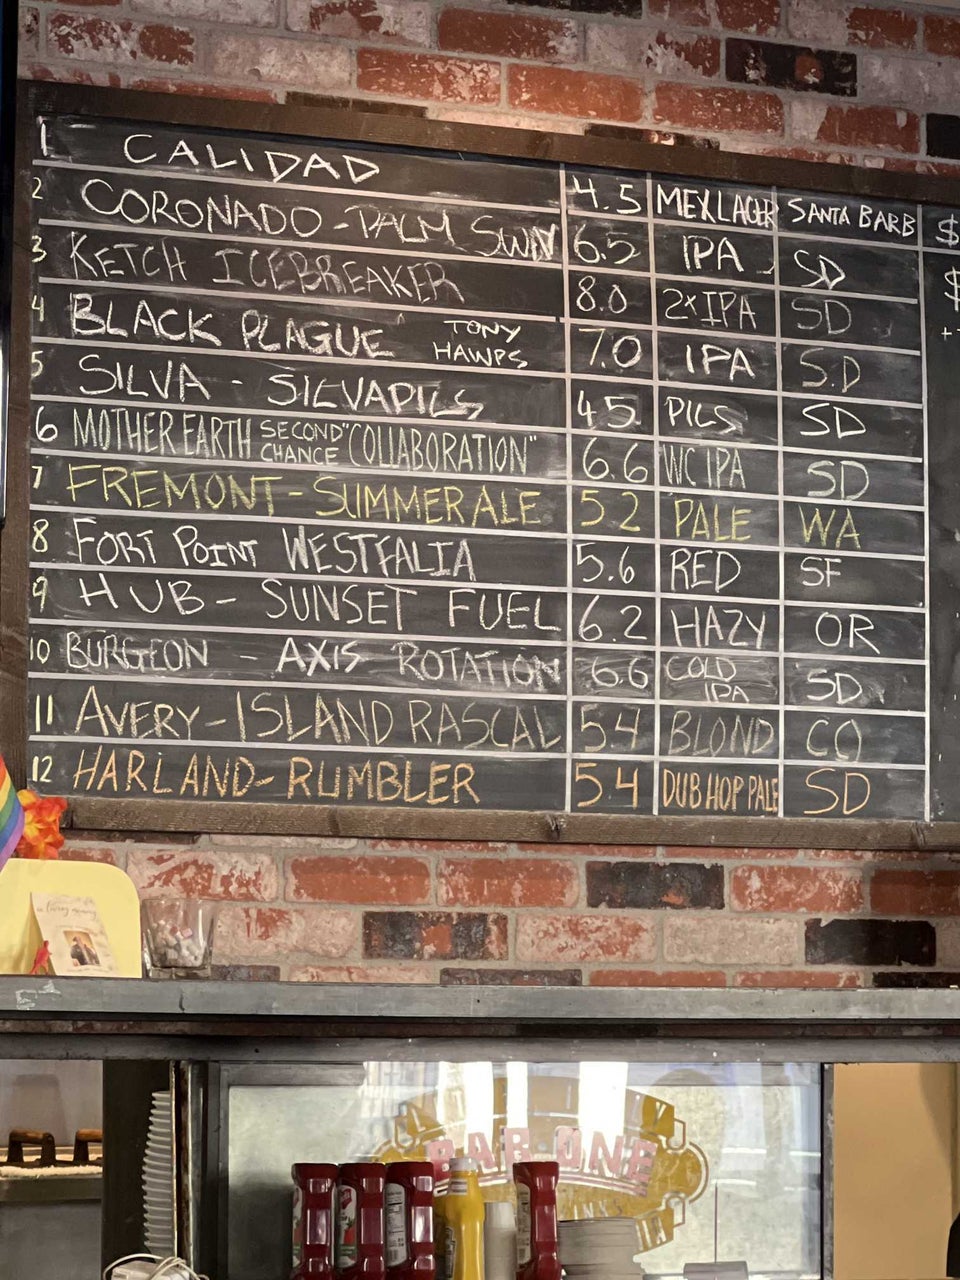 1 CALIDAD 4.5 MEX LAGER SANTA BARB $
2 CORONADO - PALM SWN 6.5 IPA SD $
3 KETCH ICEBREAKER 8.0 2x IPA SD
4 BLACK PLAGUE TONY HAWPS 7.0 IPA S.D
5 SILVA - SILVAPILS 4.5 PILS SD
6 MOTHER EARTH SECOND CHANCE "COLLABORATION" 6.6 WC IPA SD
7 FREMONT - SUMMER ALE 5.2 PALE WA
8 FORT POINT WESTFALIA 5.6 RED SF
9 HUB - SUNSET FUEL 6.2 HAZY OR
10 BURGEON - AXIS ROTATION 6.6 COLD IPA SD
11 AVERY - ISLAND RASCAL 5.4 BLOND CO
12 HARLAND - RUMBLER 5.4 DUB HOP PALE SD
BAR ONE